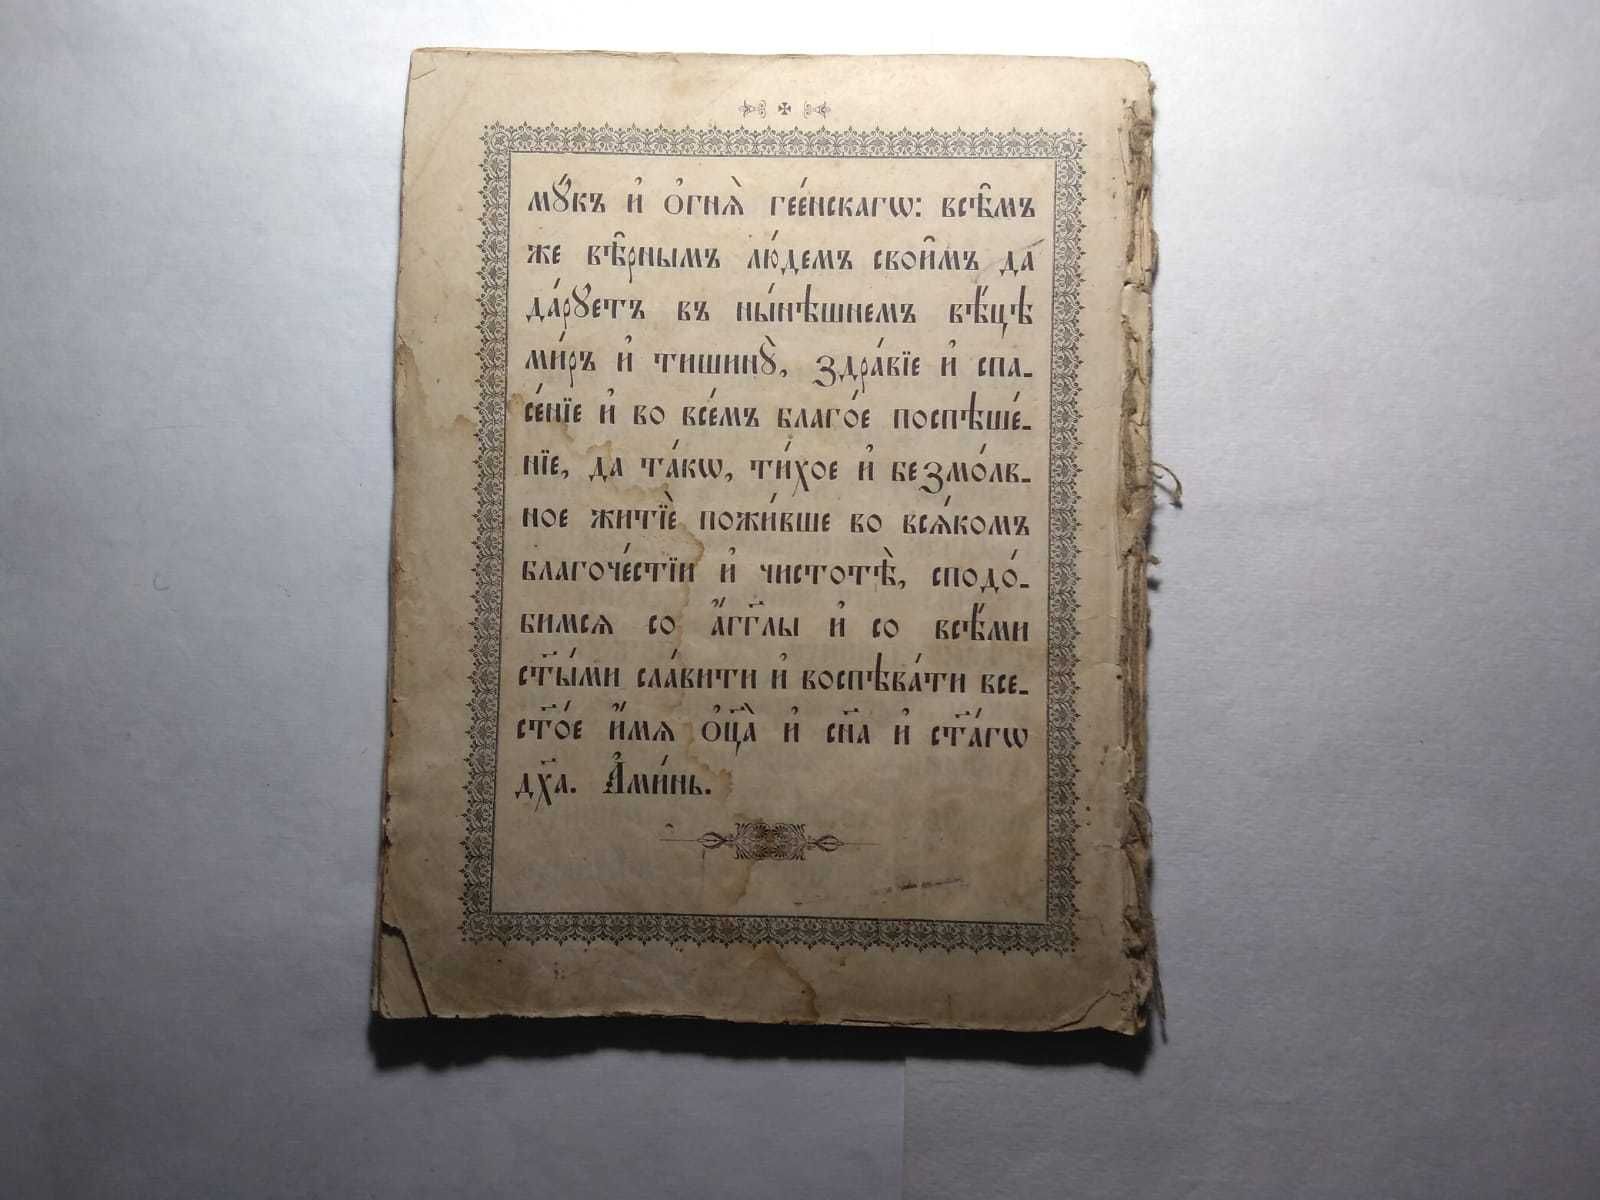 мꙋ́къ и҆ ѻ҆гнѧ̀ гее́нскагѡ: всѣ̑мъ
же вѣ̑рнымъ лю́демъ свои̑мъ да
да́рꙋетъ въ ны́нѣшнемъ вѣ́цѣ
ми́ръ и҆ тишинꙋ̀, здра́вїе и҆ спа-
се́нїе и҆ во все́мъ благо́е поспѣше́-
нїе, да та́кѡ, ти́хое и҆ безмо́лв-
ное житїѐ пожи́вше во всѧ́комъ
благоче́стїи и҆ чистотѣ̀, сподо́-
бимсѧ со а҆́гг҃лы и҆ со всѣ́ми
ст҃ы́ми сла́вити и҆ воспѣва́ти все-
ст҃о́е и҆́мѧ ѻ҆ц҃а̀ и҆ сн҃а и҆ ст҃а́гѡ
дх҃а. А҆ми́нь.